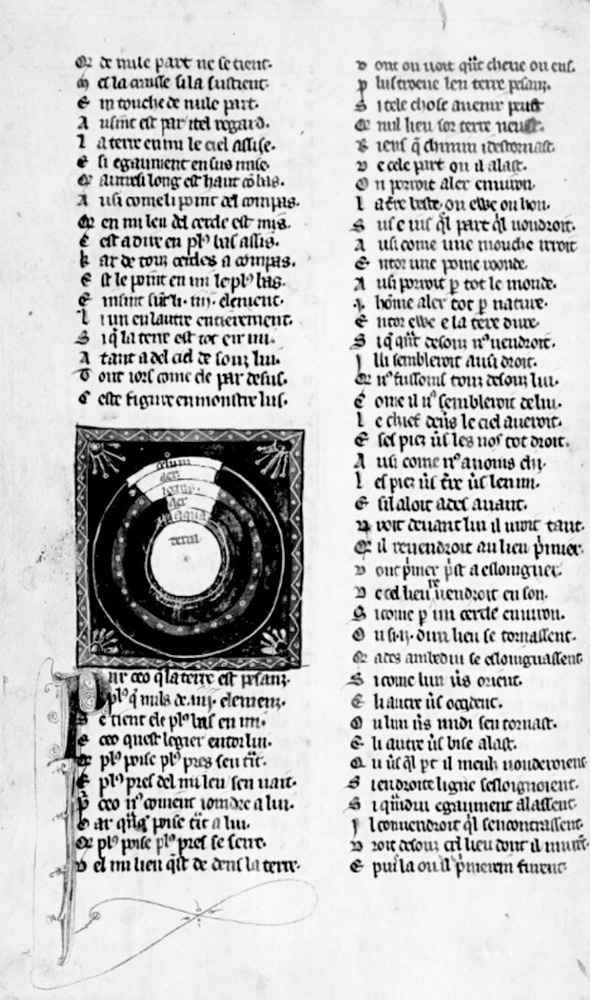 Or de nule part ne se tient.
M es la crusse si la sustient.
E in touche de nule part.
A usint est par itel regard.
L a terre en mi le ciel assise.
E si egaument en sus mise.
Or autresi long est haut cõ bas.
A usi come li point del compas.
Or en mi leu del cercle est mis.
C est a dire en pl9 bas assis.
k ar de touz cercles a compas.
E st le point en mi le pl9 bas.
E insint sũt li .iiij. element.
L i un en lautre entierement.
S i q̃ la terre est tot en mi.
A tant a del ciel de souz lui.
T out iors come de par desus.
C este figure en monstre lus.
celum
aer
aer
aqua
terra
P ur ceo q̃ la terre est pesanz.
pl9 q̃ nuls de .iiij. elemenz.
S e tient ele pl9 bas en mi.
E ceo quest legier entor lui.
Or pl9 poise pl9 pres sen tit.
E pl9 pres del mi leu sen vait.
P ceo nr9 covient ioindre a lui.
k ar q̃nq9 poise tit a lui.
Or pl9 poise pl9 pres se serre.
D el mi lieu qest de dens la terre.
D ont on uoit q̃nt cheue on eus.
P lus troeue len terre pesanz.
S i tele chose avenir peust
Or nul lieu sor terre neust
R iens q̃ chimin i destornast.
D e cele part ou il alast.
O n porroit aler environ.
L a tere beste ou ewe ou hon.
S us e ius q̃l part q̃l uoudroit.
A usi come une mouche irroit
E ntor une pome roonde.
A usi porroit p tot le monde.
.i. home aler tot p nature.
E ntor ewe e la tere dure.
S i q̃ q̃nt desouz nr9 uendroit.
I lli sembleroit ausi droit.
Or nr9 fussoms touz desouz lui.
C ome il nr9 sembleroit de lui.
L e chief deuers le ciel averoit.
E ses piez ũs les nos tot droit.
A usi come nr9 avoms chi.
L es piez ũs tere ũs len mi.
E sil aloit ades avant.
D roit devant lui il iroit tant.
Or il revendroit au lieu p̃mier.
D ont p̃mier prist a esloignier.
D e cel lieu revendroit en son.
S i come p un cercle environ.
O u si .ij. dun lieu se tornassent.
Or ades ambedui se esloignassent
S i come lun ũs orient.
E li autre ũs occident.
O u lun ũs midi sen tornast.
E li autre ũs bise alast.
O u ũs q̃l pt il meulz uouderoient
S i en droite ligne sesloignoient.
S i q̃ mdui egaument alassent.
I l convendroit q̃l sencontrassent.
D roit desouz cel lieu dont il murent.
E puis la ou il p̃mierem furent.